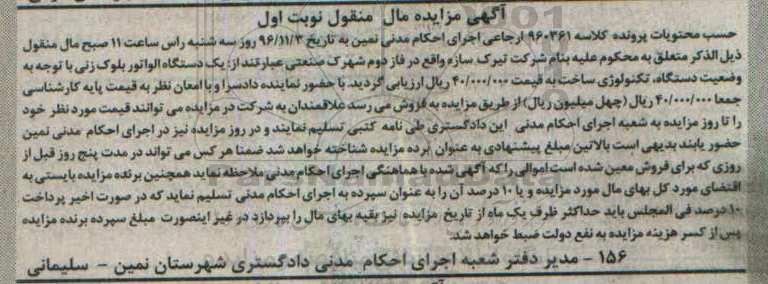 آگهی مزایده مال منقول نوبت اول
حسب محتویات پرونده کلاسه ۹۶۰۳۶۱ ارجاعی اجرای احکام مدنی نمین به تاریخ ۹۶/۱۱/۳ روز سه شنبه راس ساعت ۱۱ صبح مال منقول
ذیل الذکر متعلق به محکوم علیه بنام شرکت تیرک سازه واقع در فاز دوم شهرک صنعتی عبارتند از: یک دستگاه الواتور بلوک زنی با توجه به
وضعیت دستگاه، تکنولوژی ساخت به قیمت ۴۰/۰۰۰/۰۰۰ ریال ارزیابی گردید. با حضور نماینده دادسرا و با امعان نظر به قیمت پایه کارشناسی
جمعا ۴۰/۰۰۰/۰۰۰ ریال (چهل میلیون ریال) از طریق مزایده به فروش می رسد علاقمندان به شرکت در مزایده می توانند قیمت مورد نظر خود
را تا روز مزایده به شعبه اجرای احکام مدنی این دادگستری طی نامه کتبی تسلیم نمایند و در روز مزایده نیز در اجرای احکام مدنی نمین
حضور یابند بدیهی است بالاترین مبلغ پیشنهادی به عنوان برده مزایده شناخته خواهد شد ضمنا هر کس می تواند در مدت پنج روز قبل از
روزی که برای فروش معین شده است اموالی را که آگهی شده با هماهنگی اجرای احکام مدنی ملاحظه نماید همچنین برنده مزایده بایستی به
اقتضای مورد کل بهای مال مورد مزایده و یا ۱۰ درصد آن را به عنوان سپرده به اجرای احکام مدنی تسلیم نماید که در صورت اخیر پرداخت
۱۰ درصد فی المجلس باید حداکثر ظرف یک ماه از تاریخ مزایده نیز بقیه بهای مال را بپردازد در غیر اینصورت مبلغ سپرده برنده مزایده
پس از کسر هزینه مزایده به نفع دولت ضبط خواهد شد.
۱۵۶ - مدیر دفتر شعبه اجرای احکام مدنی دادگستری شهرستان نمین - سلیمانی